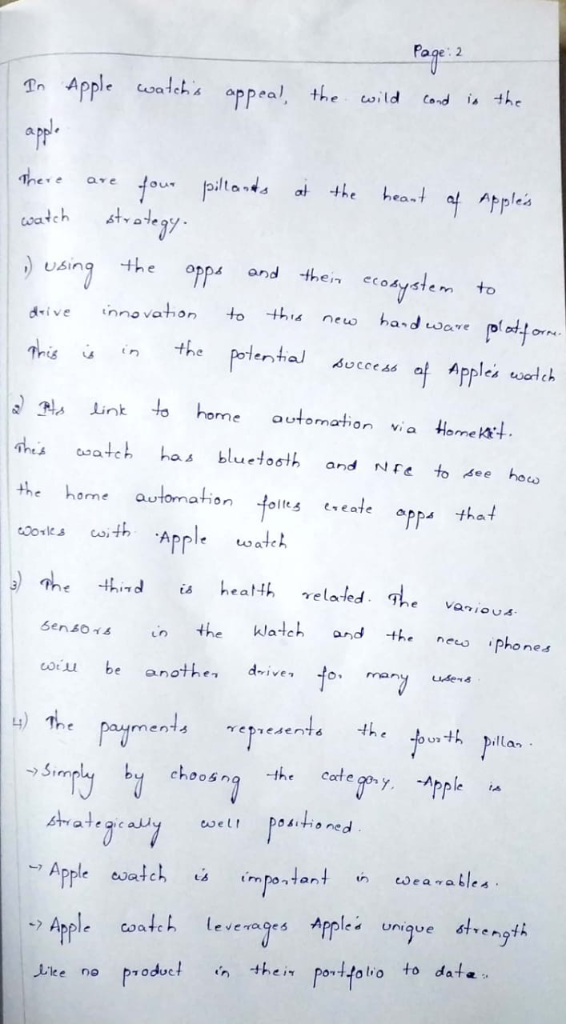 Page: 2
In Apple watch's appeal, the wild cand is the
apple
There are four pillands at the heart of Apple's
watch strategy.
1) using the apps and their ecosystem to
drive innovation to this new handware platform.
This is in the potential success of Apple's watch
2) Its link to home automation via Homekit.
This watch has bluetooth and NFC to see how
the home automation folks create apps that
works with Apple watch
3) The third is health related. The various
sensors in the Watch and the new iphones
will be another driver for many users.
4) The payments represents the fourth pillar.
→ Simply by choosng the category, Apple is
strategically well positioned.
→ Apple watch is important in wearables.
→ Apple watch leverages Apple's unique strength
like no product in their portfolio to date.